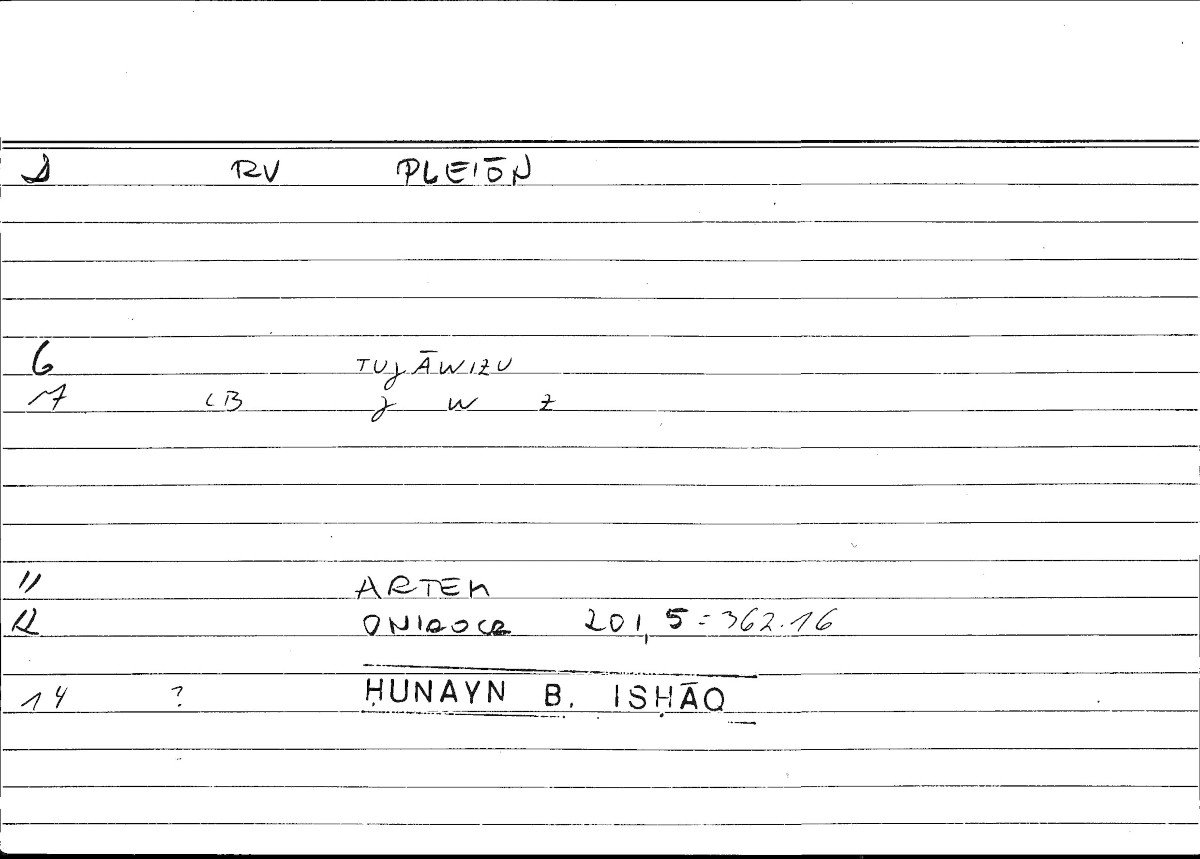 1 RV PLEIŌN
6 TUJĀWIZU
7 CB J W Z
11 ARTEM
12 ONIROCR 201,5 = 362.16
14 ? ḤUNAYN B. ISḤĀQ